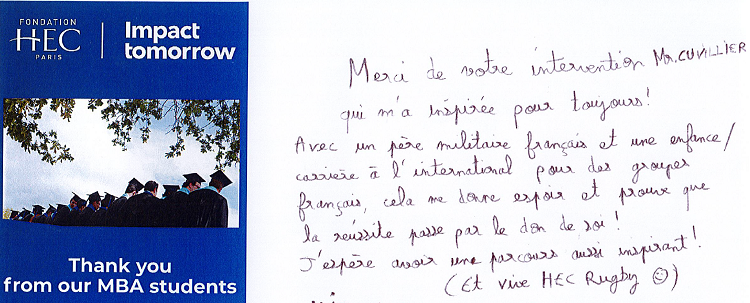 FONDATION
HEC
PARIS
Impact
tomorrow
Thank you
from our MBA students
Merci de votre intervention Mr. CUVILLIER
qui m'a inspirée pour toujours!
Avec un père militaire français et une enfance/
carrière à l'international pour des groupes
français, cela me donne espoir et prouve que
la réussite passe par le don de soi!
J'espère avoir une parcours aussi inspirant!
(Et vive HEC Rugby ☺)